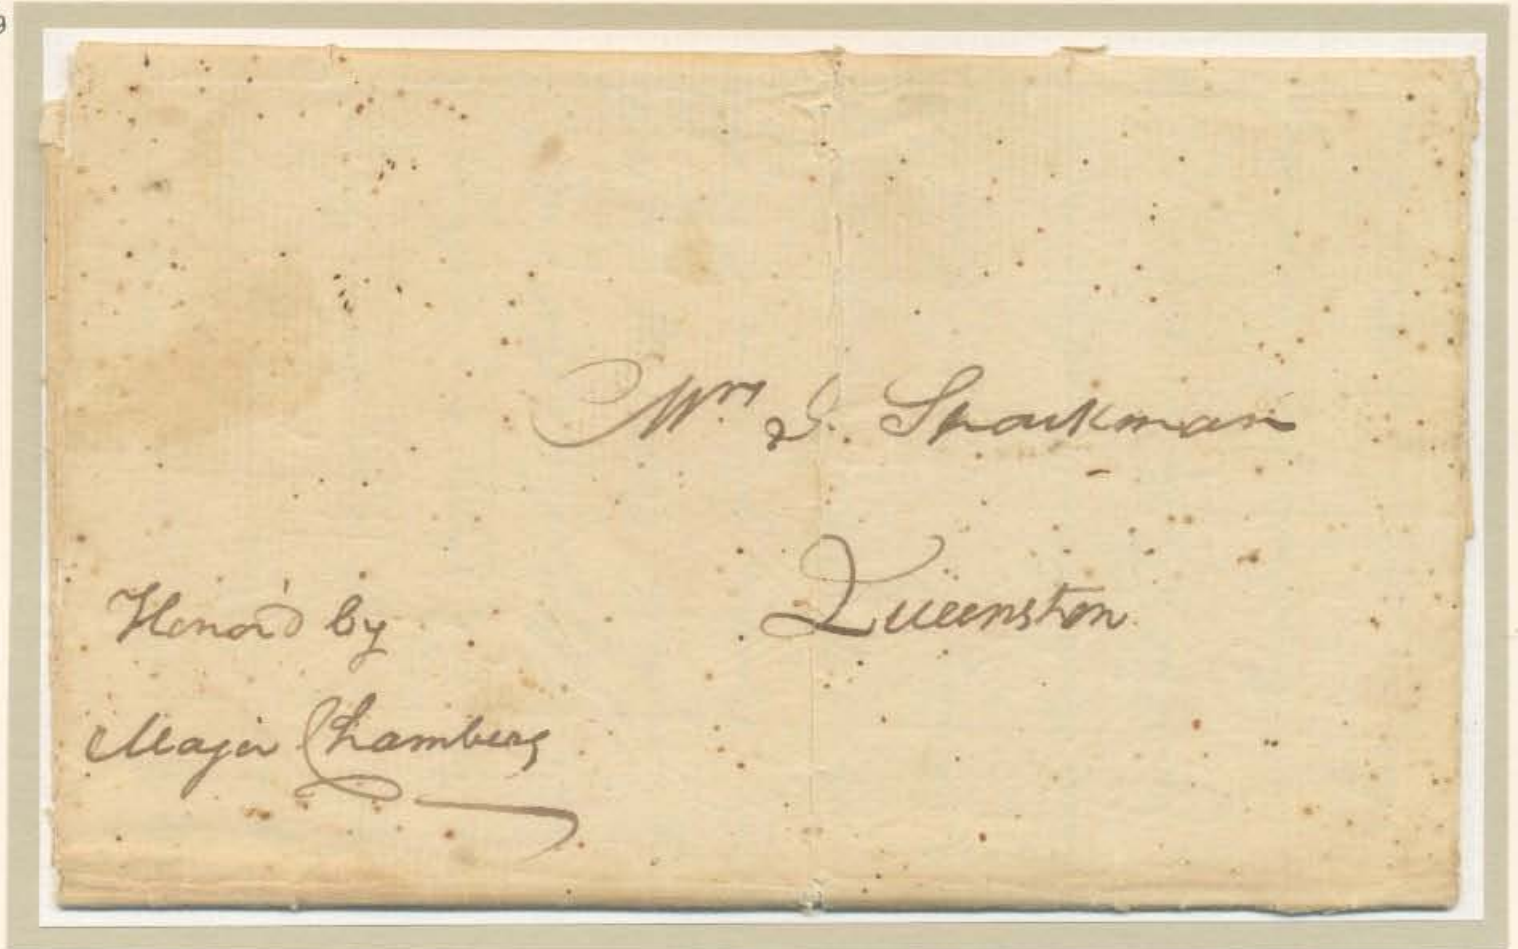 Mrs J. Sparkman
Queenston
Honor'd by
Major Chambers
9